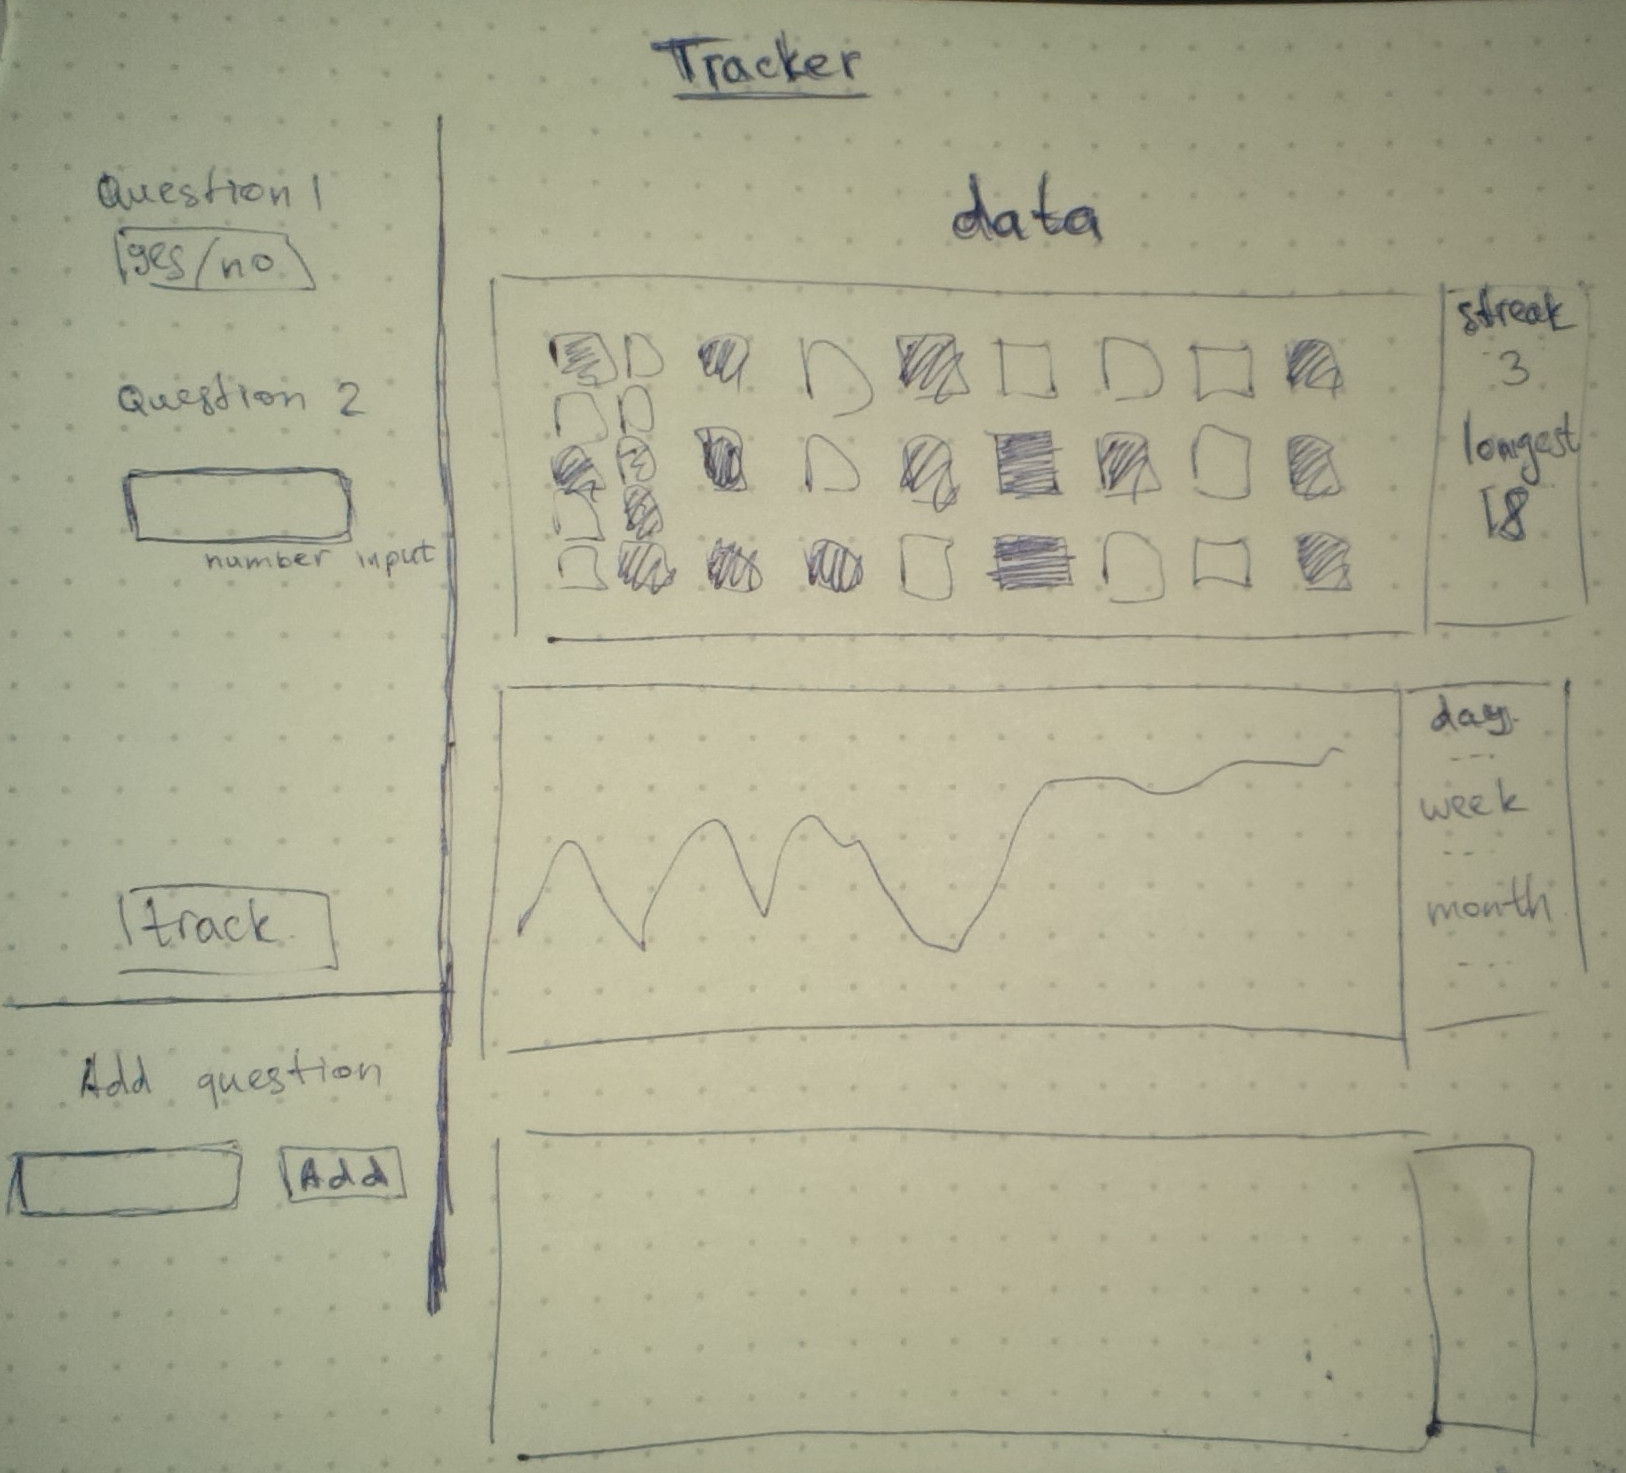 Tracker
Question 1
yes/no
Question 2
number input
track
Add question
Add
data
streak
3
longest
18
day
week
month